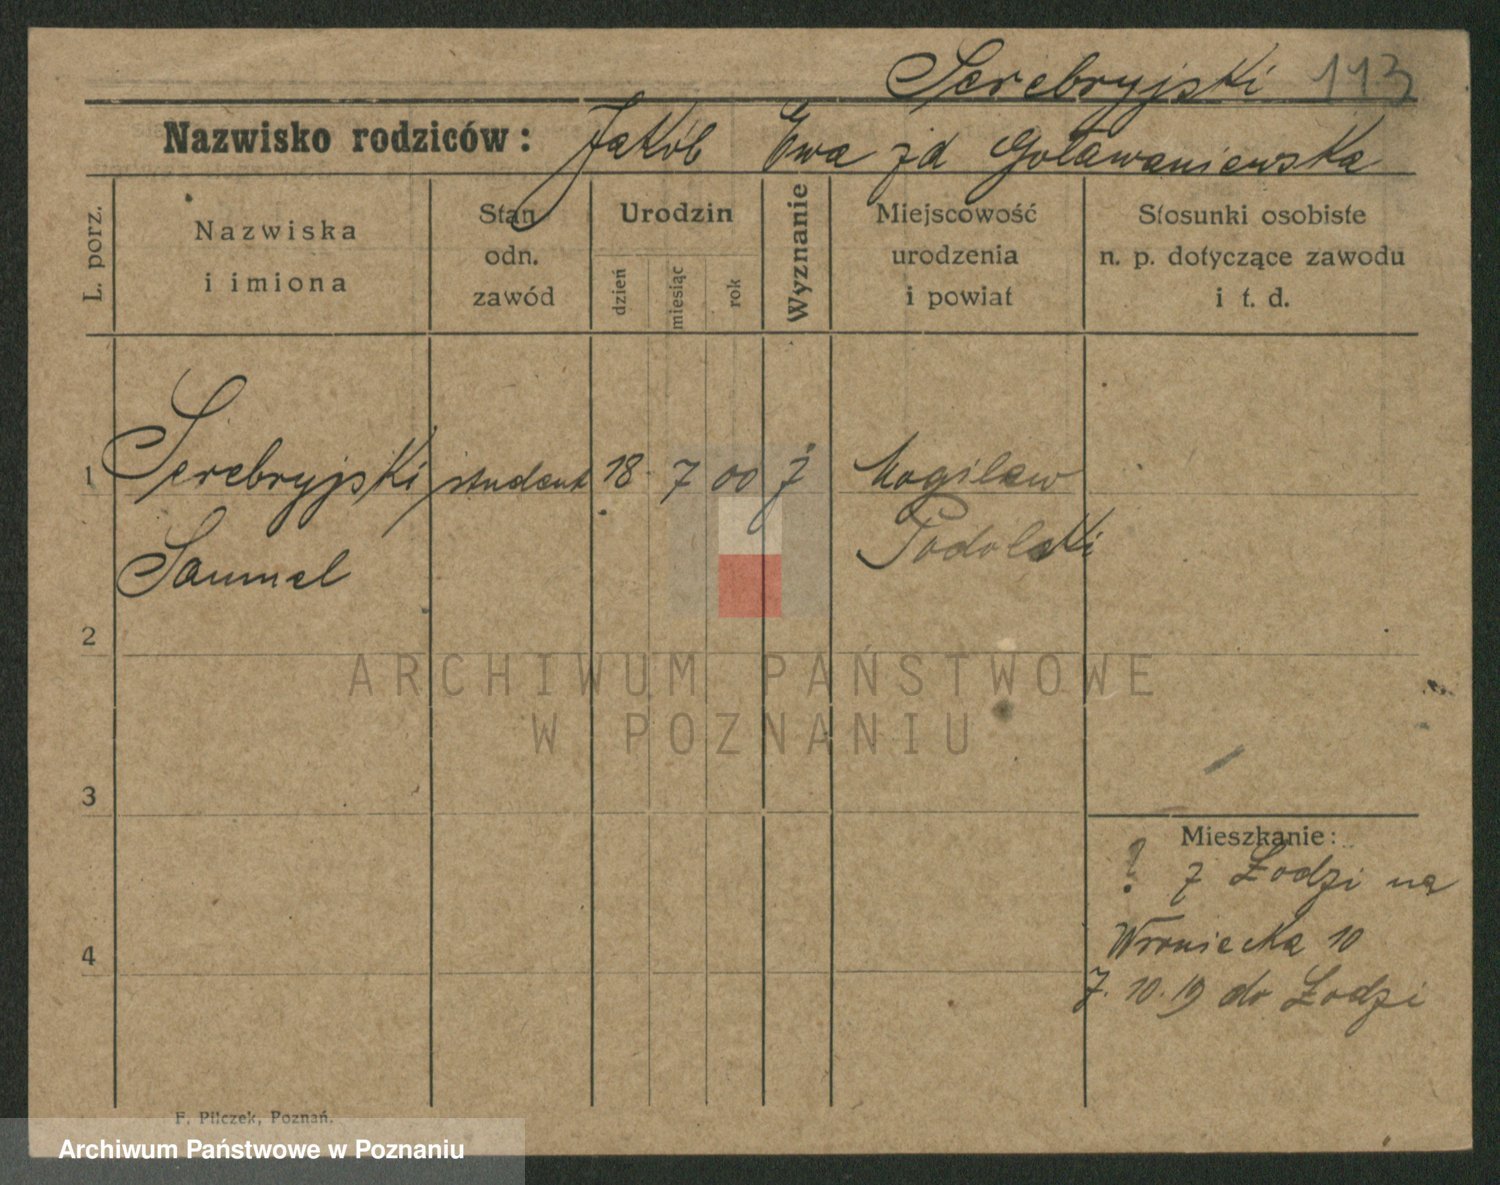 Serebryjski 113
Nazwisko rodziców: Jakób Ewa zd Goławaniewska
L. porz.
Nazwiska
i imiona
Stan
odn.
zawód
Urodzin
dzień
miesiąc
rok
Wyznanie
Miejscowość
urodzenia
i powiat
Stosunki osobiste
n. p. dotyczące zawodu
i t. d.
1 Serebryjski student 18 7 00 j Mogilew
Samuel Podolski
2
3
4
Mieszkanie:
? z Łodzi na
Wroniecka 10
7. 10. 19 do Łodzi
ARCHIWUM PAŃSTWOWE
W POZNANIU
F. Pilczek, Poznań.
Archiwum Państwowe w Poznaniu